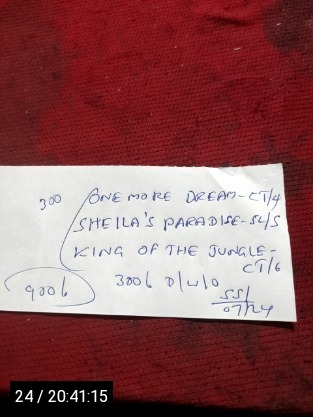 300 ONE MORE DREAM-CT/4
SHEILA'S PARADISE-SL/5
KING OF THE JUNGLE-
CT/6
900/- 300/- D/W/O
SS/
07/24
24 / 20:41:15